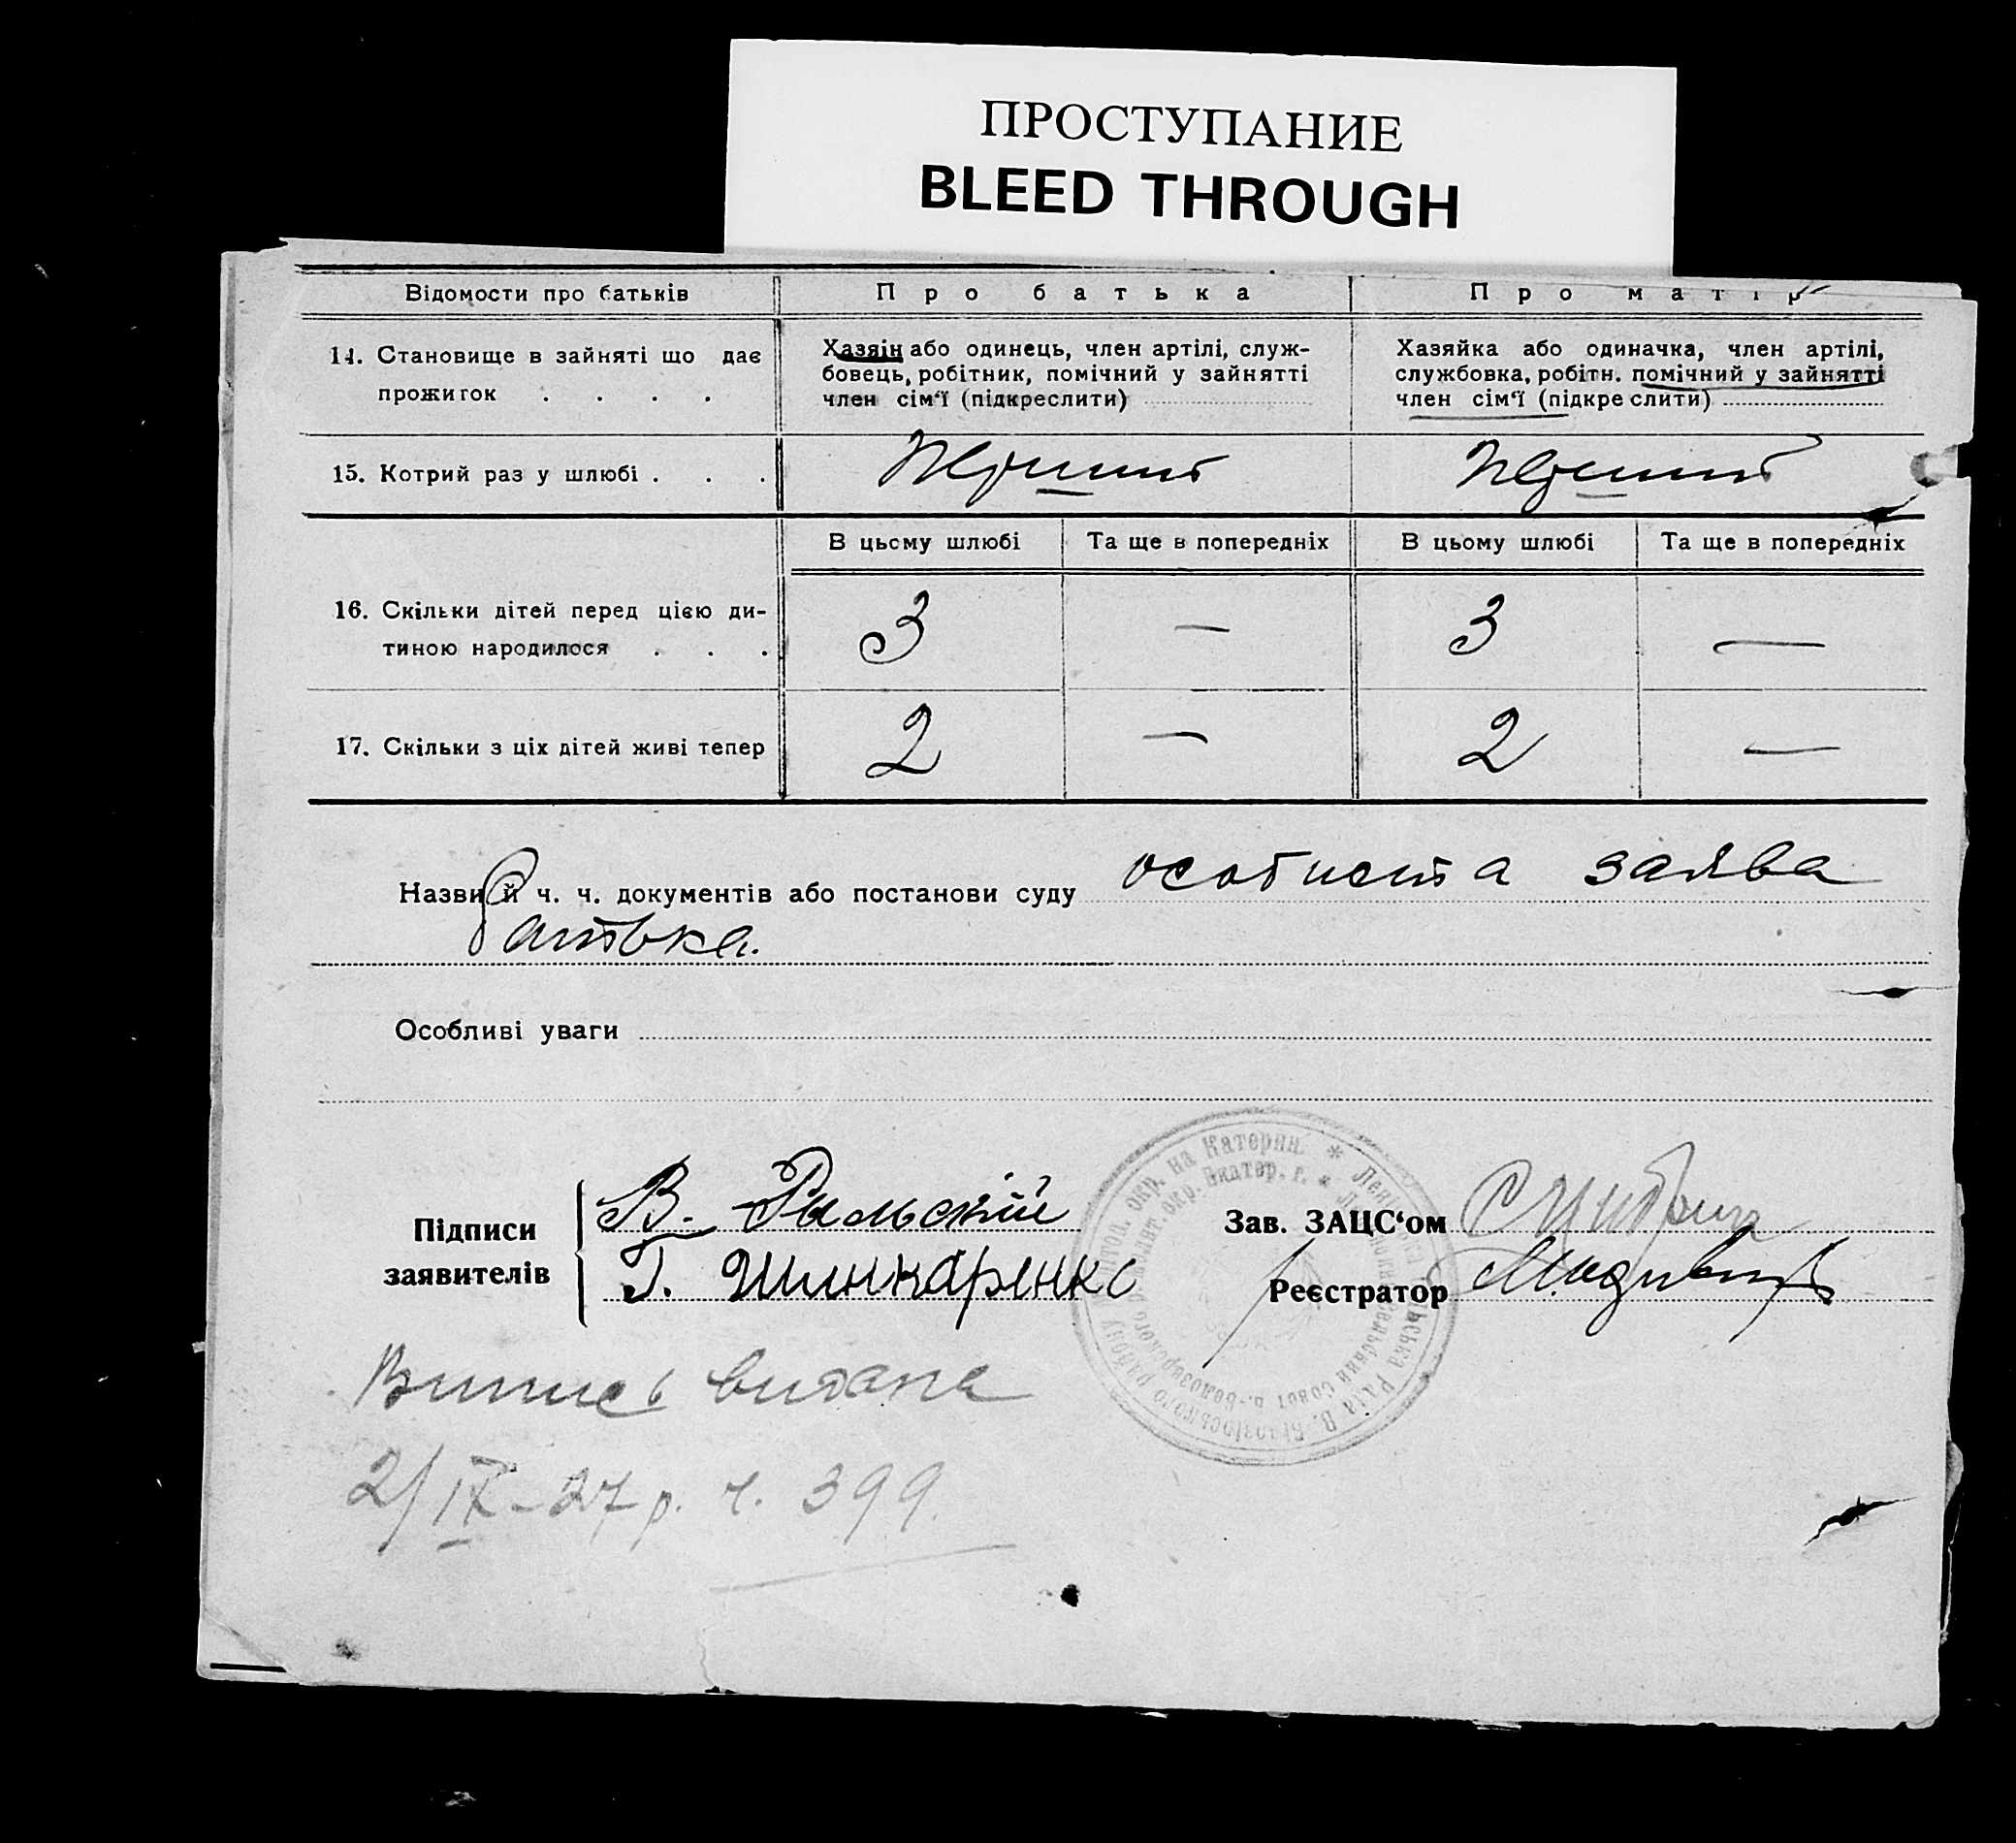 ПРОСТУПАНИЕ
BLEED THROUGH
Відомости про батьків
Про батька
Про матір
14. Становище в зайняті що дає
прожиток . . . .
Хазяін або одинець, член артілі, служ-
бовець, робітник, помічний у зайнятті
член сім'ї (підкреслити)
Хазяйка або одиначка, член артілі,
службовка, робітн. помічний у зайнятті
член сім'ї (підкреслити)
15. Котрий раз у шлюбі . . .
Перший
Перший
В цьому шлюбі
Та ще в попередніх
В цьому шлюбі
Та ще в попередніх
16. Скільки дітей перед цією ди-
тиною народилося . . .
3 — 3 —
17. Скільки з ціх дітей живі тепер
2 — 2 —
Назви й ч. ч. документів або постанови суду особиста заява
батька.
Особливі уваги
Підписи
заявителів
В. Рыльский
Г. Шинкаренко
Зав. ЗАЦС'ом
Реєстратор
Випись видана
2/IX-27 р. ч. 399.